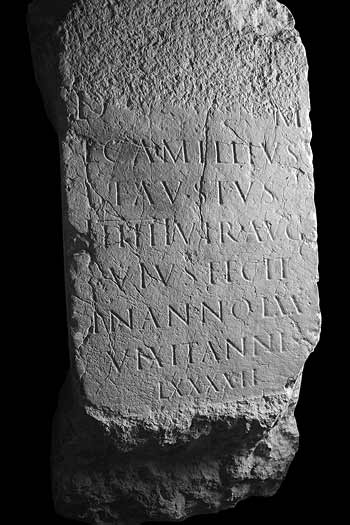 D M
L CAMILLIUS
FAUSTUS
IIIIII VIR AUG
VIVUS FECIT
IN ANNO LXX
VIXIT ANNIS
LXXXVII